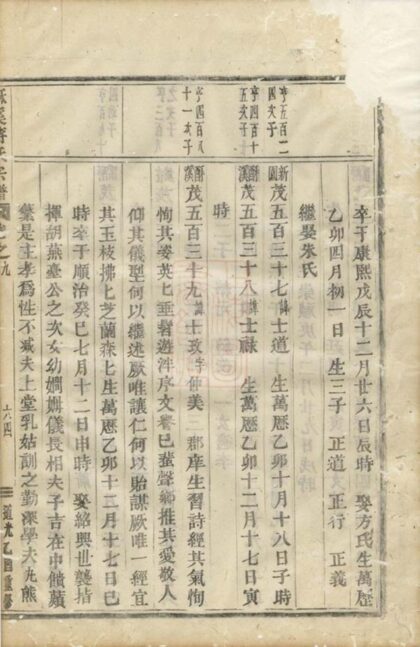 卒于康熙戊辰十二月廿六日辰時 娶方氏生萬歷
乙卯四月初一日 生三子 正道 正行 正義
繼娶朱氏
亨五百二
四次子
新園
茂五百三十七諱士道 生萬歷乙卯十月十八日子時
亨四百十
五次子
醑溪
茂五百三十八諱士祿 生萬歷乙卯十二月十七日寅
時
亨四百八
十一次子
醑溪
茂五百三十九諱士玫字仲美 郡庠生習詩經其氣恂
恂其姿英七垂髫遊泮序文譽已蜚聲鄉推其愛敬人
仰其儀型何以繼述厥唯讓仁何以貽謀厥唯一經宜
其玉枝拂七芝蘭森七生萬歷乙卯十二月十七日巳
時卒于順治癸巳七月十二日申時 娶紹興世襲指
揮胡燕臺公之次女幼嫻姆儀長相夫子吉在中饋蘋
蘩是主孝爲性不減夫上堂乳姑訓之勤深學夫丸熊
宗譜
卷之九
六四
道光乙酉重修